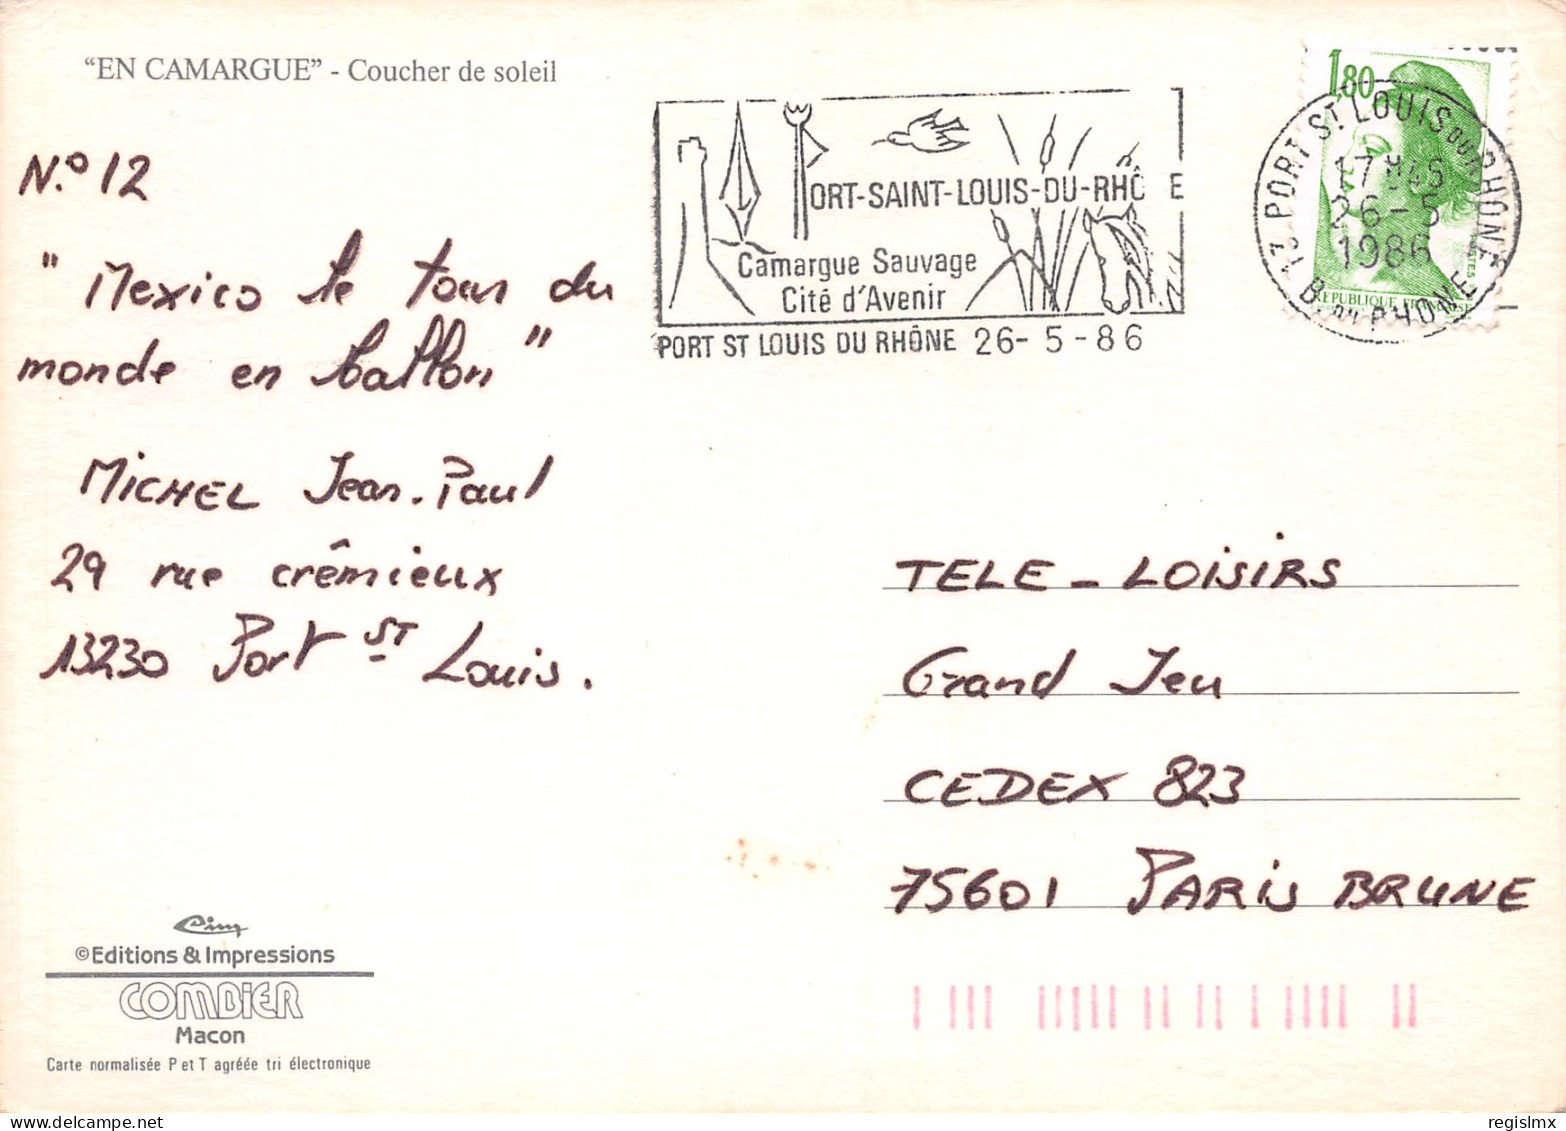 “EN CAMARGUE” - Coucher de soleil
N.º 12
" Mexico le tour du
monde en ballon "
MICHEL Jean-Paul
29 rue crêmieux
13230 Port ST Louis.
PORT-SAINT-LOUIS-DU-RHÔ E
Camargue Sauvage
Cité d'Avenir
PORT ST LOUIS DU RHÔNE 26-5-86
1,80
REPUBLIQUE
13 PORT ST LOUIS DU RHONE
17 H45
26-5
1986
B. DU RHONE
TELE - LOISIRS
Grand Jeu
CEDEX 823
75601 PARIS BRUNE
Cim
©Editions & Impressions
COMBIER
Macon
Carte normalisée P et T agréée tri électronique
regislmx